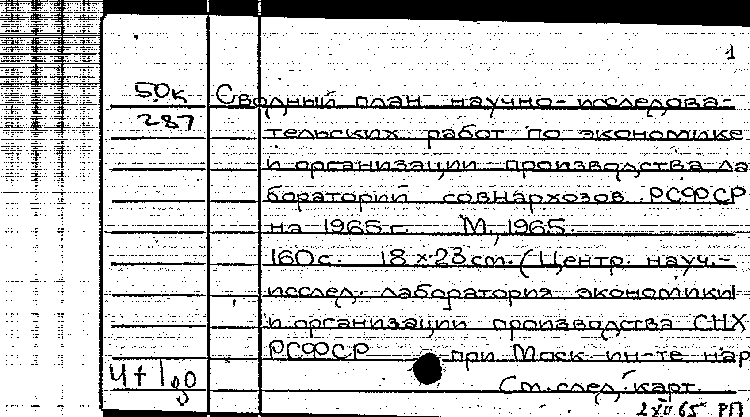 1
50к Сводный план научно-исследова-
287 тельских работ по экономике
и организации производства ла
бораторий совнархозов РСФСР
на 1965г. М., 1965.
160с. 18×23см. (Центр. науч.-
исслед. лаборатория экономики
и организации производства СНХ
РСФСР при Моск ин-те нар
См. след. карт.
2 XII 65 РП